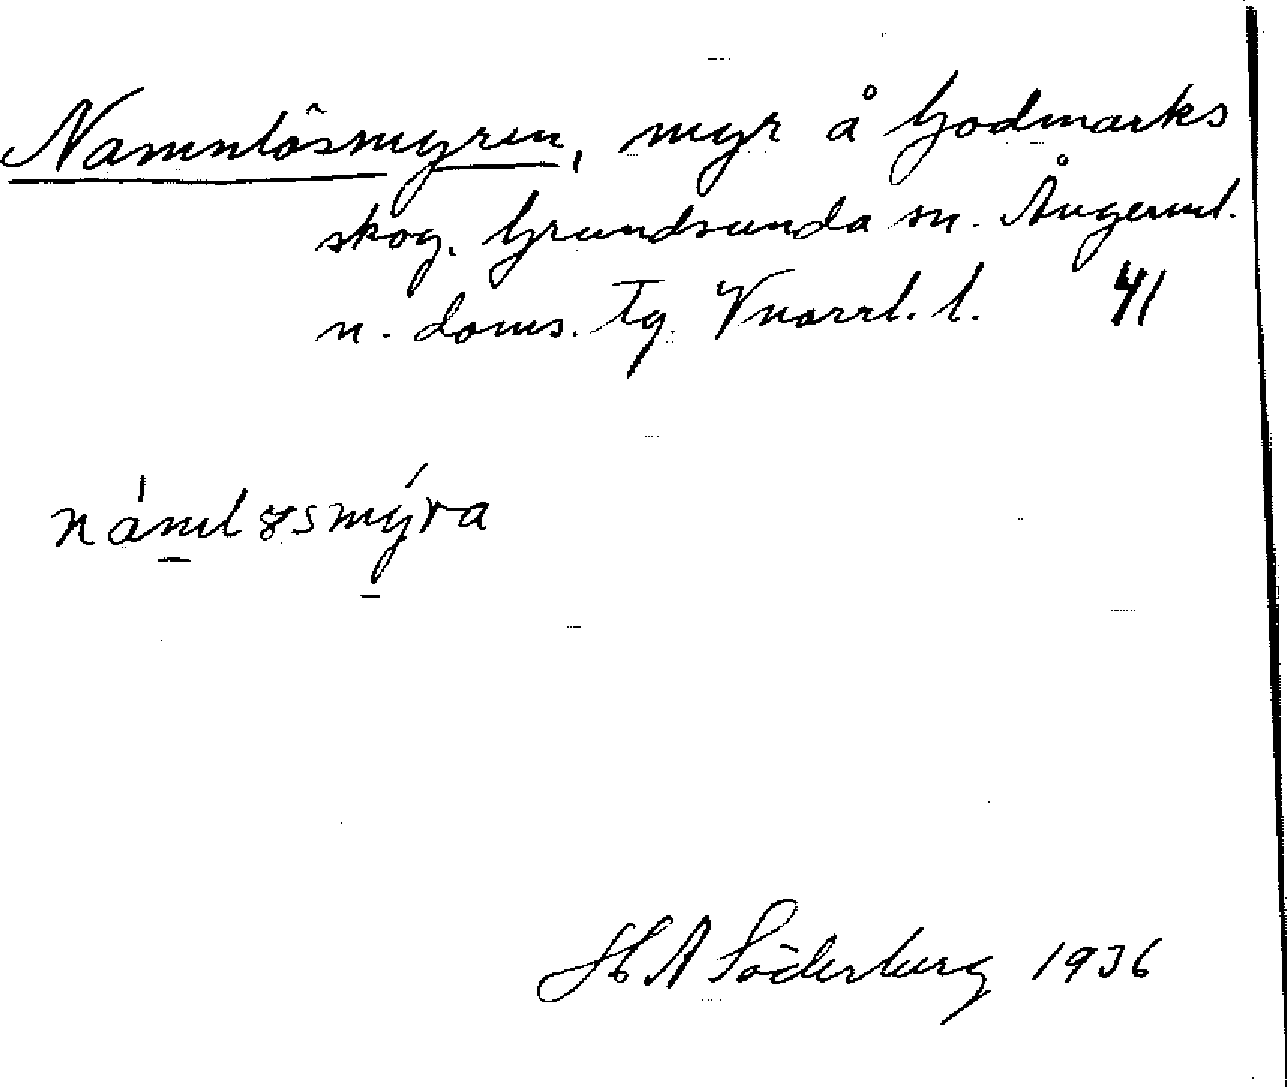 Namnlösmyren, myr å Godmarks
skog. Grundsunda sn. Ångerml.
n. doms. Tg. Vnorrl. l. 41
námløsmýra
H A Söderberg 1936